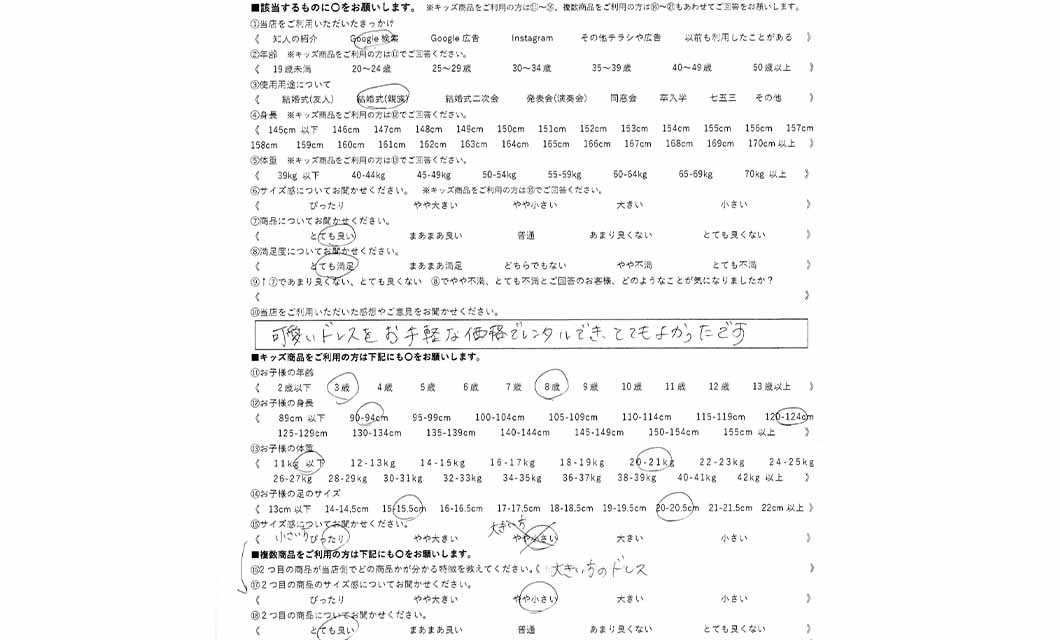 ■該当するものに〇をお願いします。 ※キッズ商品をご利用の方は⑪～⑮、複数商品をご利用の方は⑯～㉑もあわせてご回答をお願いします。
①当店をご利用いただいたきっかけ
《 知人の紹介 Google 検索 Google 広告 Instagram その他チラシや広告 以前も利用したことがある 》
②年齢 ※キッズ商品をご利用の方は⑪でご回答ください。
《 19歳未満 20～24歳 25～29歳 30～34歳 35～39歳 40～49歳 50歳以上 》
③使用用途について
《 結婚式(友人) 結婚式(親族) 結婚式二次会 発表会(演奏会) 同窓会 卒入学 七五三 その他 》
④身長 ※キッズ商品をご利用の方は⑫でご回答ください。
《 145cm 以下 146cm 147cm 148cm 149cm 150cm 151cm 152cm 153cm 154cm 155cm 156cm 157cm
158cm 159cm 160cm 161cm 162cm 163cm 164cm 165cm 166cm 167cm 168cm 169cm 170cm以上 》
⑤体重 ※キッズ商品をご利用の方は⑬でご回答ください。
《 39kg 以下 40-44kg 45-49kg 50-54kg 55-59kg 60-64kg 65-69kg 70kg 以上 》
⑥サイズ感についてお聞かせください。 ※キッズ商品をご利用の方は⑮でご回答ください。
《 ぴったり やや大きい やや小さい 大きい 小さい 》
⑦商品についてお聞かせください。
《 とても良い まあまあ良い 普通 あまり良くない とても良くない 》
⑧満足度についてお聞かせください。
《 とても満足 まあまあ満足 どちらでもない やや不満 とても不満 》
⑨↑⑦であまり良くない、とても良くない ⑧でやや不満、とても不満とご回答のお客様、どのようなことが気になりましたか?
《 》
⑩当店をご利用いただいた感想やご意見をお聞かせください。
可愛いドレスをお手軽な価格でレンタルでき、とてもよかったです
■キッズ商品をご利用の方は下記にも〇をお願いします。
⑪お子様の年齢
《 2歳以下 3歳 4歳 5歳 6歳 7歳 8歳 9歳 10歳 11歳 12歳 13歳以上 》
⑫お子様の身長
《 89cm 以下 90-94cm 95-99cm 100-104cm 105-109cm 110-114cm 115-119cm 120-124cm
125-129cm 130-134cm 135-139cm 140-144cm 145-149cm 150-154cm 155cm 以上 》
⑬お子様の体重
《 11kg 以下 12-13kg 14-15kg 16-17kg 18-19kg 20-21kg 22-23kg 24-25kg
26-27kg 28-29kg 30-31kg 32-33kg 34-35kg 36-37kg 38-39kg 40-41kg 42kg 以上 》
⑭お子様の足のサイズ
《 13cm以下 14-14,5cm 15-15.5cm 16-16.5cm 17-17.5cm 18-18.5cm 19-19.5cm 20-20.5cm 21-21.5cm 22cm以上 》
⑮サイズ感についてお聞かせください。 大きい方
《 小さい方 ぴったり やや大きい やや小さい 大きい 小さい 》
■複数商品をご利用の方は下記にも〇をお願いします。
⑯2つ目の商品が当店側でどの商品かが分かる特徴を教えてください。《 大きい方のドレス 》
⑰2つ目の商品のサイズ感についてお聞かせください。
《 ぴったり やや大きい やや小さい 大きい 小さい 》
⑱2つ目の商品についてお聞かせください。
《 とても良い まあまあ良い 普通 あまり良くない とても良くない 》